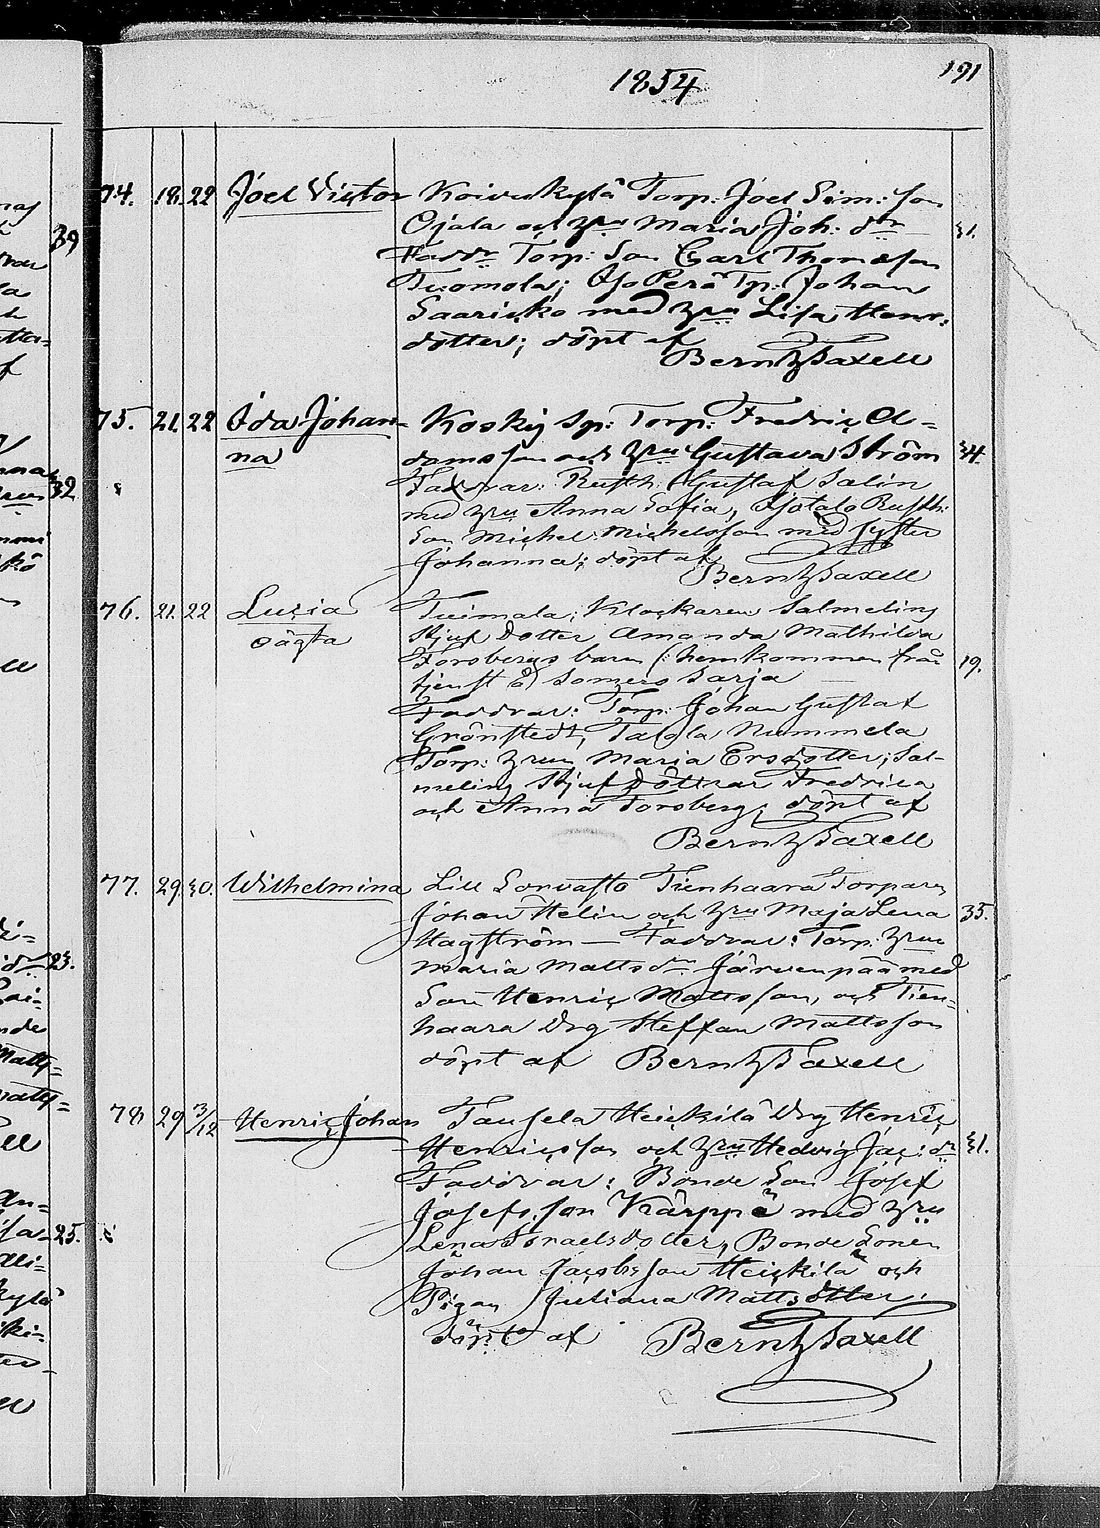 1854
191
74. 18. 22 Joel Victor Koivukylä Torp: Joel Sim: son
Ojala och hru Maria Joh: dr 31.
Faddr Torp: Son Carl Thomasson
Tuomola; Iso Perä Tp: Johan
Saaricko med hru Lisa Henr:
dotter; döpt af
Bernh Taxell
75. 21. 22 Ida Johan- Koski sp: Torp: Fredric A-
na damsson och hru Gustava Ström 34.
Faddrar: Rusth: Gustaf Salin
med hru Anna Sofia, Ojotalo Rusth:
Son Michel Michelsson med syster
Johanna; döpt af
Bernh Taxell
76. 21. 22 Lucia Tuimala; Klockaren Salmelins
oägta Stjuf Dotter Amanda Mathilda
Forsbergs barn (: hemkommen från 19.
tjenst i Somero Sarja
Faddrar: Torp: Johan Gustaf
Grönstedt, Talola Nummela
Torp: hrun Maria Ersdotter; Sal-
melins Stjuf Döttrar Fredrica
och Anna Forsberg; döpt af
Bernh Taxell
77. 29. 30. Wilhelmina Lill Sorvasto Tienhaara Torparn
Johan Helin och hru Maja Lena 35.
Hagström — Faddrar: Torp: hrun
Maria Matts dr Järvenpää med
Son Henric Mattsson, och Tien-
haara Drg Steffan Mattsson
döpt af Bernh Taxell
78 29 3/12 Henric Johan Taufela Heickilä Drg Henric
Henricsson och hru Hedvig Jac: dr 31.
Faddrar: Bonde Son Josef
Josefsson Kärppä med hru
Lena Israelsdotter, Bonde Sonen
Johan Jacobsson Heickilä och
Pigan Juliana Mattsdotter:
döpt af Bernh Taxell